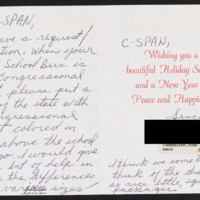 -SPAN,
ave a request/
tion. When your
School Bus is
ongressional
please put a
of the state with
ongressional
t colored on
above the school
or. I would give
or help in
the differences
various sizes/
C-SPAN,
Wishing you a
beautiful Holiday S
and a New Year
Peace and Happin
Since
I think we som
think of the dis
as nice little, squ
packages.